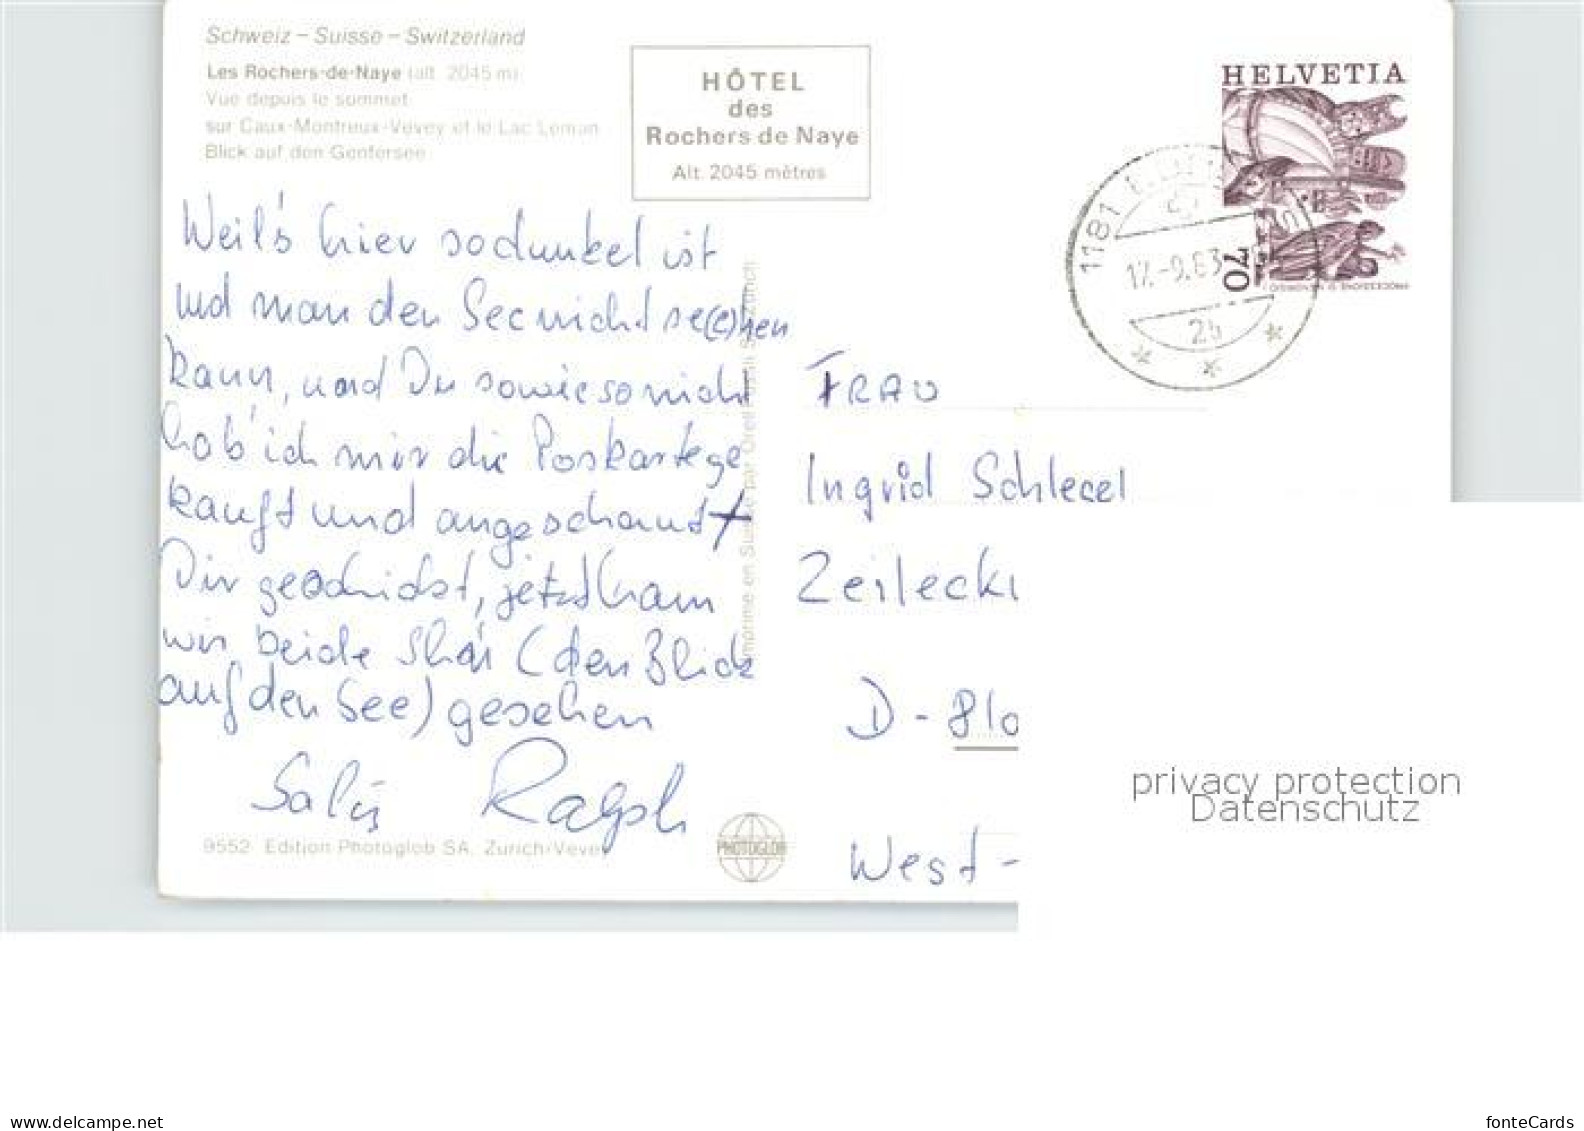 Schweiz – Suisse – Switzerland
Les Rochers-de-Naye (alt. 2045 m)
Vue depuis le sommet
sur Caux-Montreux-Vevey et le Lac Léman
Blick auf den Genfersee
HÔTEL
des
Rochers de Naye
Alt. 2045 mètres
HELVETIA
70
1181
17.-9.83
24
Weil's hier so dunkel ist
und man den See nicht se(e)hen
kann, und Du sowieso nicht
hab' ich mir die Poskarte ge
kauft und angeschaut +
Dir geschickt, jetzt ham
wir beide (den Blick
auf den See) gesehen
Salü Ralph
FRAU
Ingrid Schlegel
Zeileck
D - 810
West -
Imprimé en Suisse par Orell Füssli SA Zürich
9552 Edition Photoglob SA, Zürich-Vevey
PHOTOGLOB
privacy protection
Datenschutz
www.delcampe.net
fonteCards